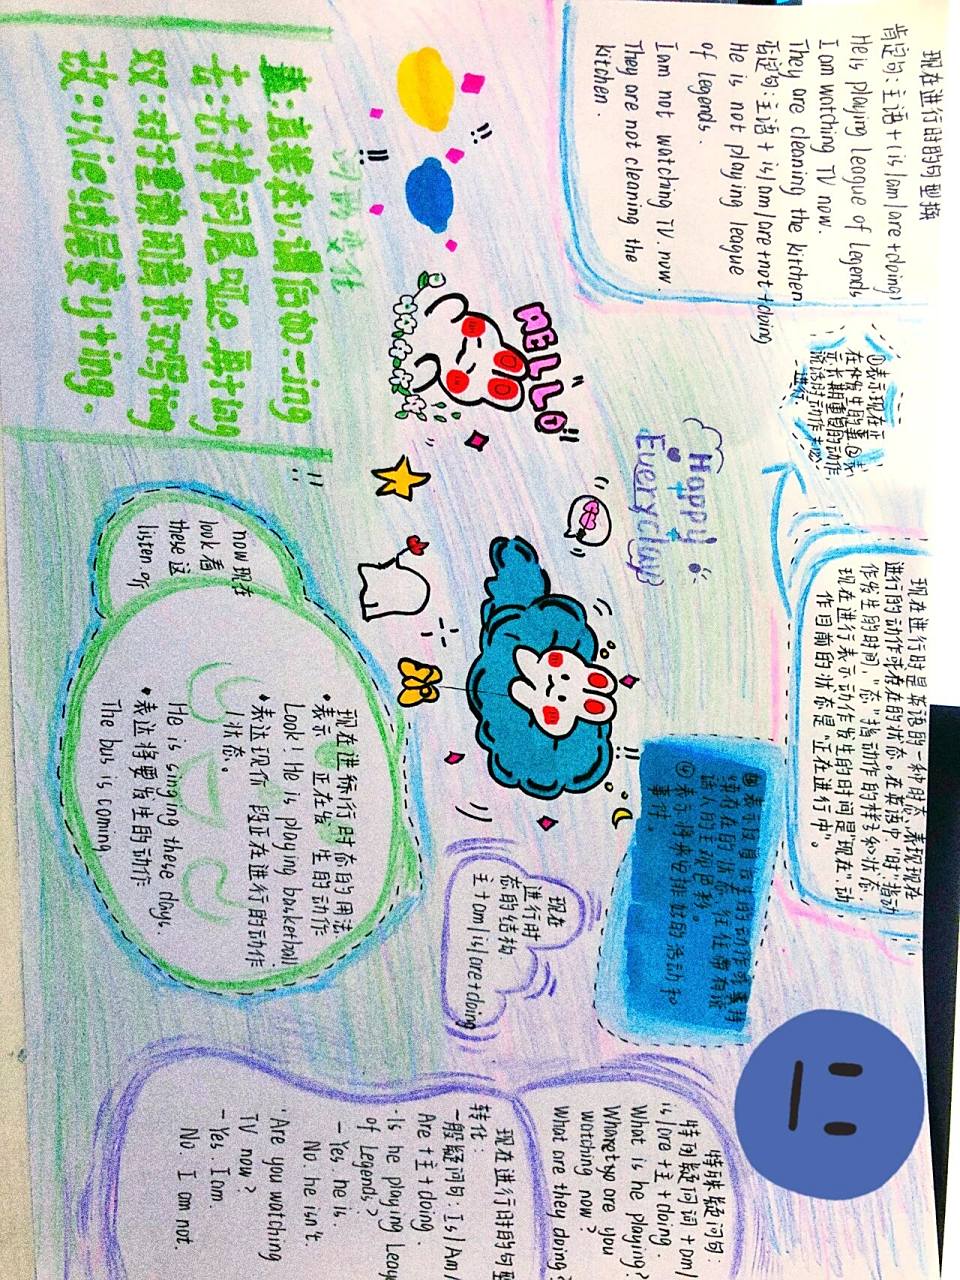 现在进行时的句型转换
肯定句：主语+(is/am/are+doing)
He is playing league of legends
I am watching TV now.
They are cleaning the kitchen
否定句：主语+is/am/are+not+doing
He is not playing league
of legends.
I am not watching TV. now
They are not cleaning the
kitchen.
①表示现在正
在发生的事②表
示长期重复的动作,
说话时动作未必
进行
现在进行时是英语的一种时态,表现现在
进行的动作或存在的状态。在英语中,"时"指动
作发生的时间,"态"指动作的样子和状态.
现在进行表示动作发生的时间是"现在"动
作目前的状态是"正在进行中"。
Happy
Everyday
HELLO!!
动词变化
直：直接在v.词后加-ing
去：去掉词尾e再+ing
双：对于重读闭音节双写+ing
改：以ie结尾变y+ing.
now现在
look看
these这
listen.听
现在进行时态的用法
表示 正在发 生的动作
Look! He is playing basketball
表达现阶段正在进行的动作
/状态。
He is singing these days.
表达将要发生的动作
The bus is coming.
④表示将来安排好的活动和
事件。
现在
进行时
态的结构
主+am/is/are+doing
特殊疑问句：
特问疑问词+am/
is/are+主+doing.
What is he playing?
are you
watching now?
What are they doing?
现在进行时的句型
转化：
一般疑问句：Is/Am/
Are+主+doing
Is he playing League
of Legends?
-Yes. he is.
No. he isn't.
Are you watching
TV now?
-Yes I am.
No. I am not.